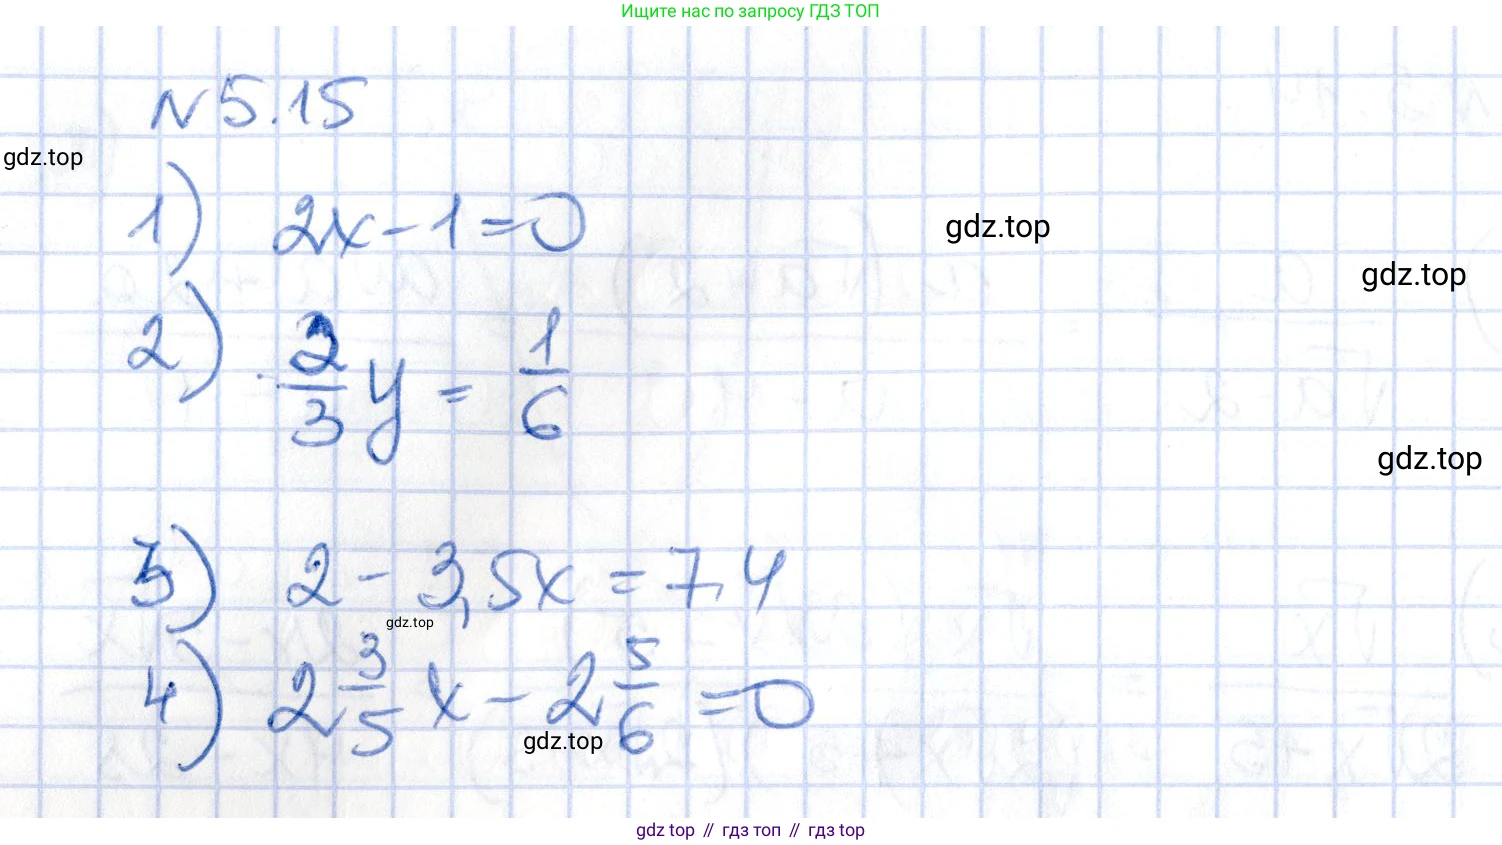 Ищите нас по запросу ГДЗ ТОП
N 5.15
gdz.top
1) 2x - 1 = 0
gdz.top
gdz.top
2) 2/3 y = 1/6
gdz.top
3) 2 - 3,5x = 7,4
gdz.top
4) 2 3/5 x - 2 5/6 = 0
gdz.top
gdz top // гдз топ // гдз top